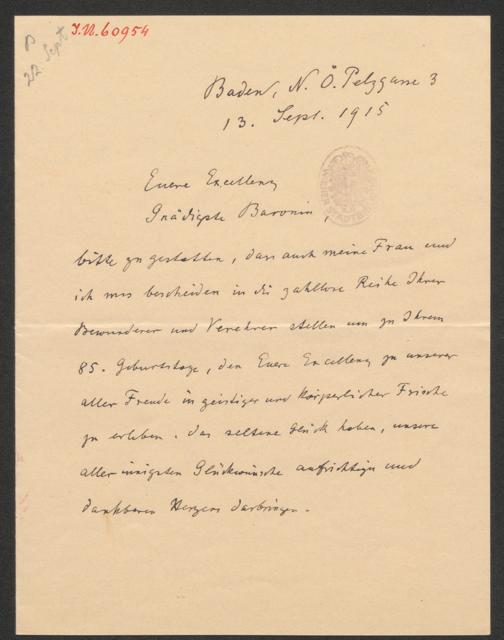 P
22. Sept
I.N. 60954
Baden, N. Ö. Pelzgasse 3
13. Sept. 1915
Euere Excellenz
Gnädigste Baronin,
bitte zu gestatten, dass auch meine Frau und
ich uns bescheiden in die zahllose Reihe Ihrer
Bewunderer und Verehrer stellen um zu Ihrem
85. Geburtstage, den Euere Excellenz zu unserer
aller Freude in geistiger und körperlicher Frische
zu erleben das seltene Glück haben, unsere
aller innigsten Glückwünsche aufrichtigen und
dankbaren Herzens darbringen.